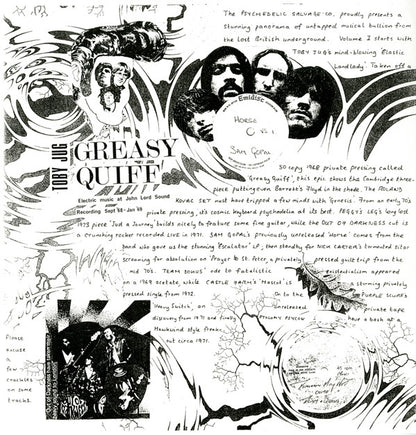 The PSYCHEDELIC SALVAGE CO. proudly presents a
stunning panorama of untapped musical bullion from
the lost British underground. Volume I starts with
TOBY JUG's mind-blowing 'Elastic
Landlady'. Taken off a
Emidisc
HORSE
SAM GOPAL
TOBY JUG
GREASY
QUIFF
Electric music at John Lord Sound
Recording Sept '68 - Jan '69
50 copy 1969 private pressing called
'Greasy Quiff', this epic shows the Cambridge three-
piece putting even Barrett's Floyd in the shade. The ROLAND
KOVAC SET must have tripped a few minds with 'Genesis'. From an early 70's
private pressing, it's cosmic keyboard psychedelia at its best. PEGGY'S LEG's long lost
1973 piece 'Just a Journey' builds nicely to feature some fine guitar, while the OUT OF DARKNESS cut is
a crunching rocker recorded LIVE in 1971. SAM GOPAL's previously unreleased 'Horse' comes from the
band who gave us the stunning 'Escalator' LP, then standby for NICK CARTER's tormented sitar
screaming for absolution on 'Prayer to St. Peter', a privately pressed guilt trip from the
mid 70's. TEAM DOKUS' ode to fatalistic existentialism appeared
on a 1969 acetate, while CASTLE FARM's 'Mascot' is a stunning privately
pressed single from 1972. On to the PURPLE
Heavy Switch', an unreleased private tape
discovery from 1971 and finally have a bash at a
Hawkwind style freak-
out circa 1971.
'Out of Darkness'
Please
excuse
a
few
crackles
on some
tracks.